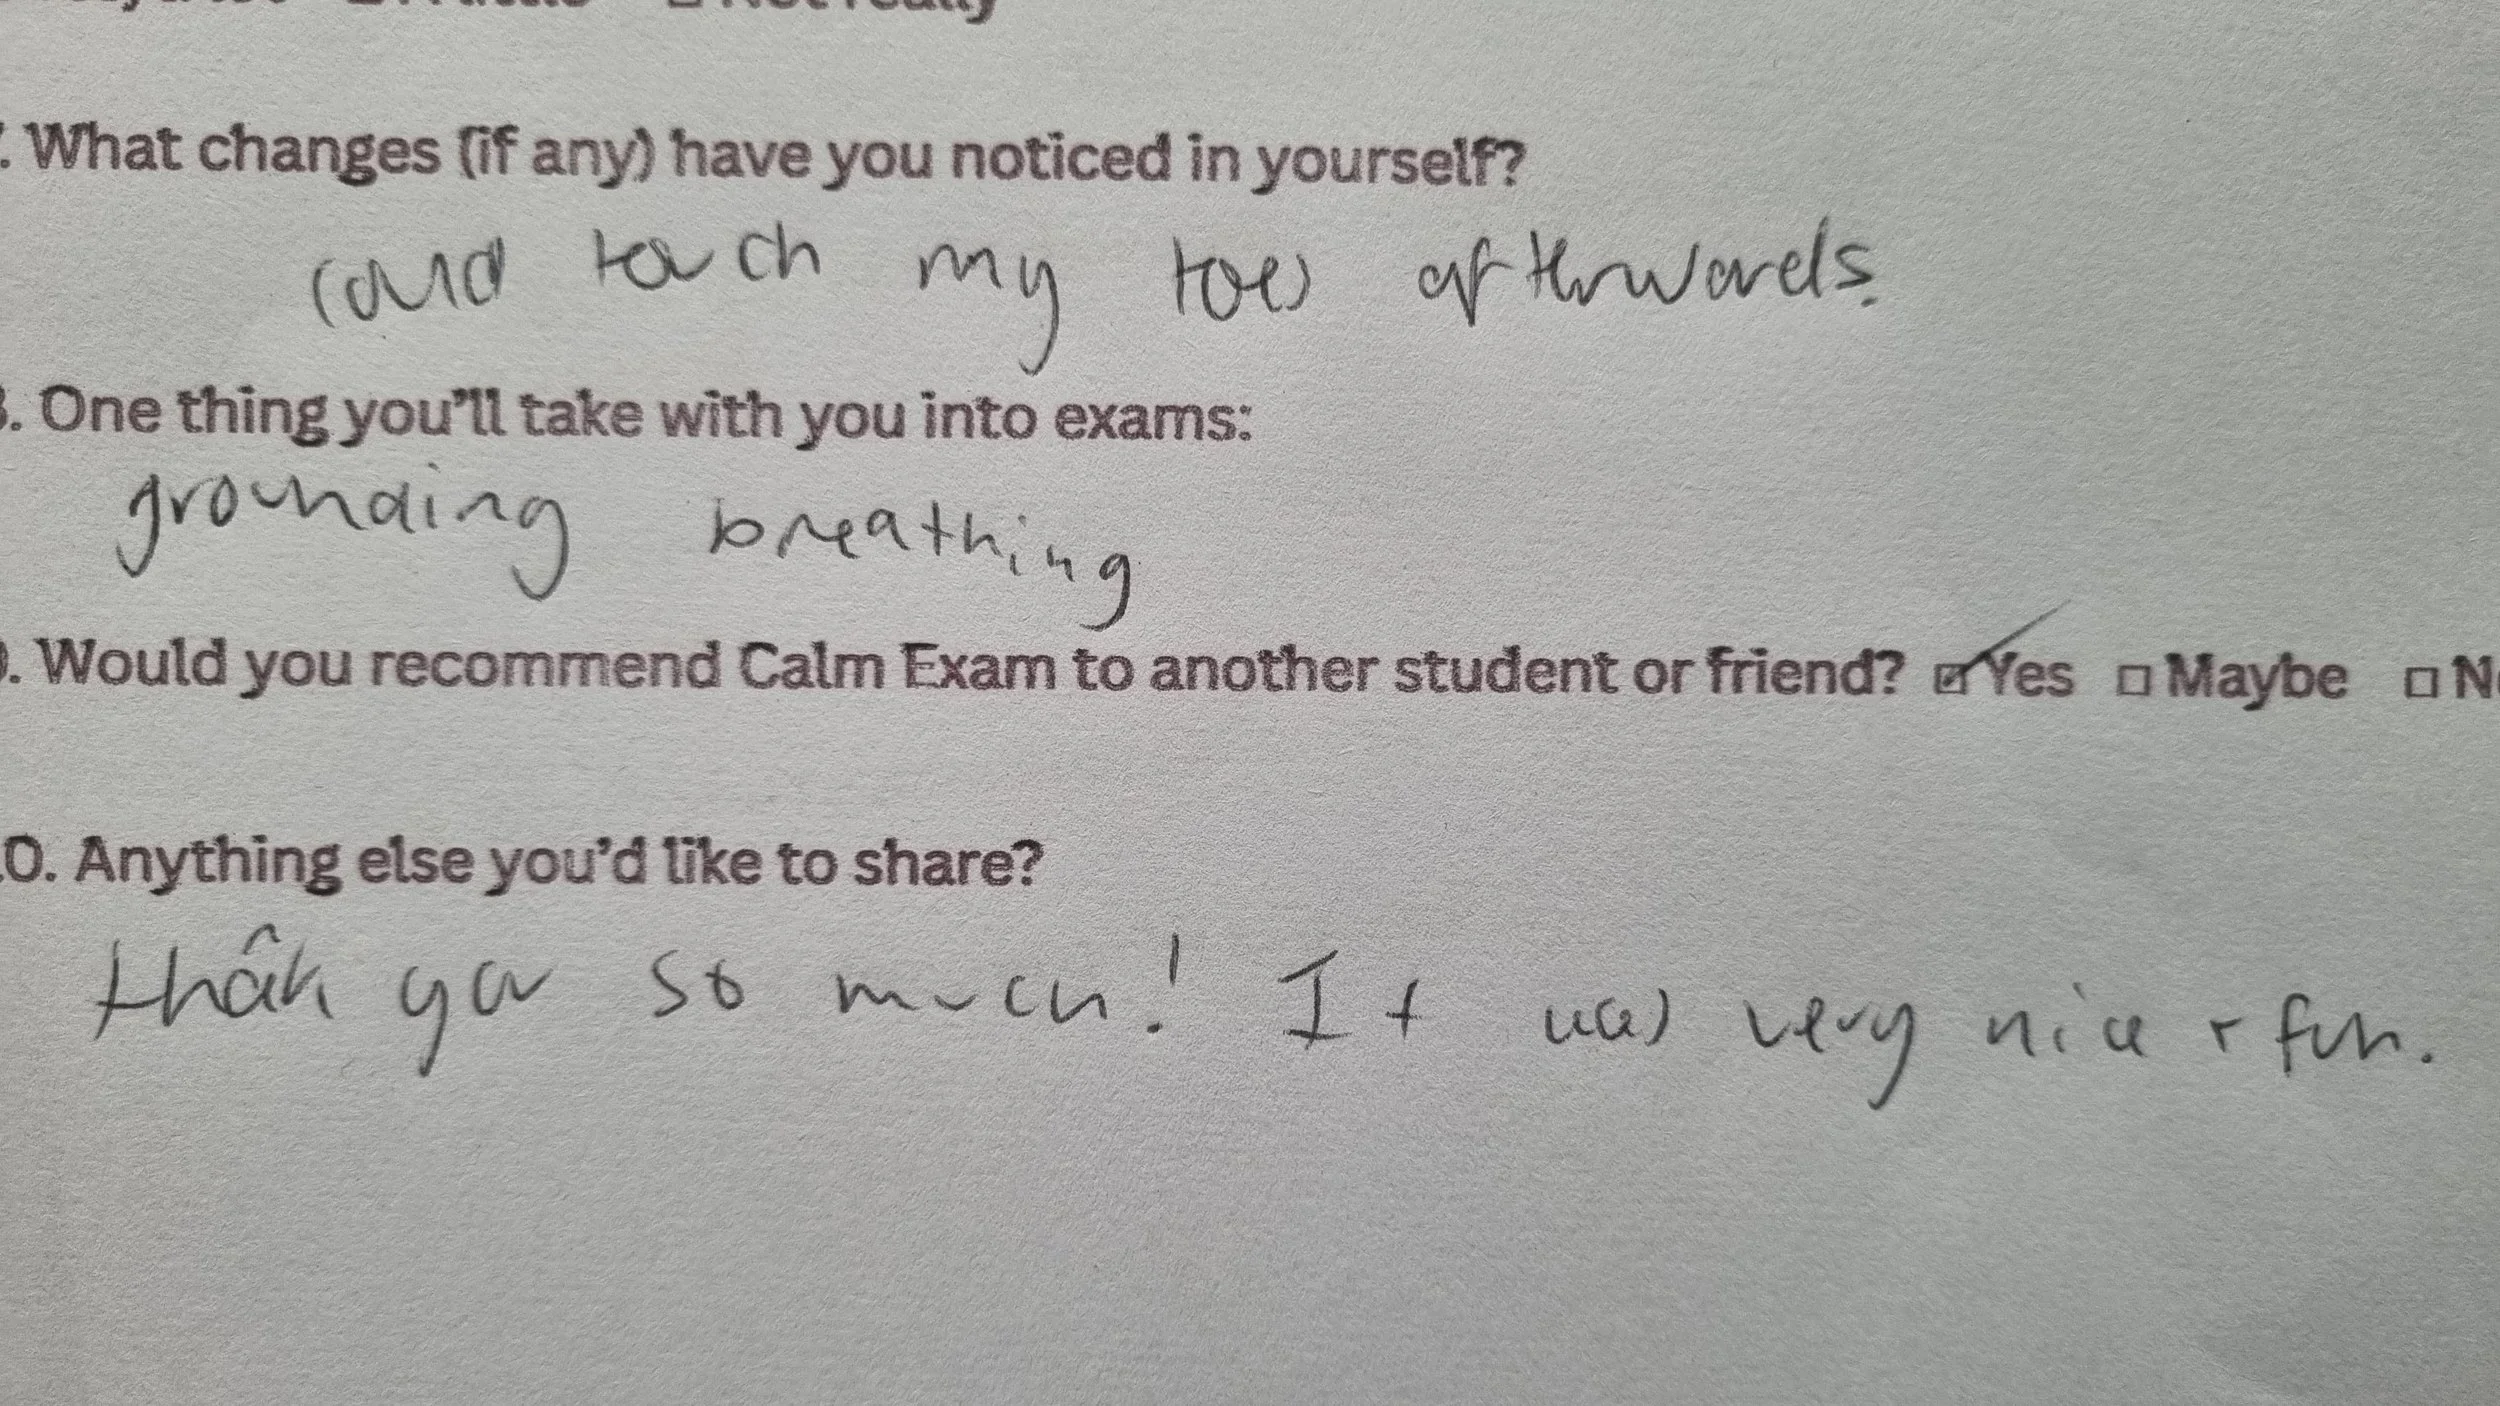 Not really
. What changes (if any) have you noticed in yourself?
could touch my toes afterwards.
. One thing you'll take with you into exams:
grounding breathing
. Would you recommend Calm Exam to another student or friend? ☑ Yes ☐ Maybe ☐
0. Anything else you'd like to share?
thank you so much! It was very nice + fun.